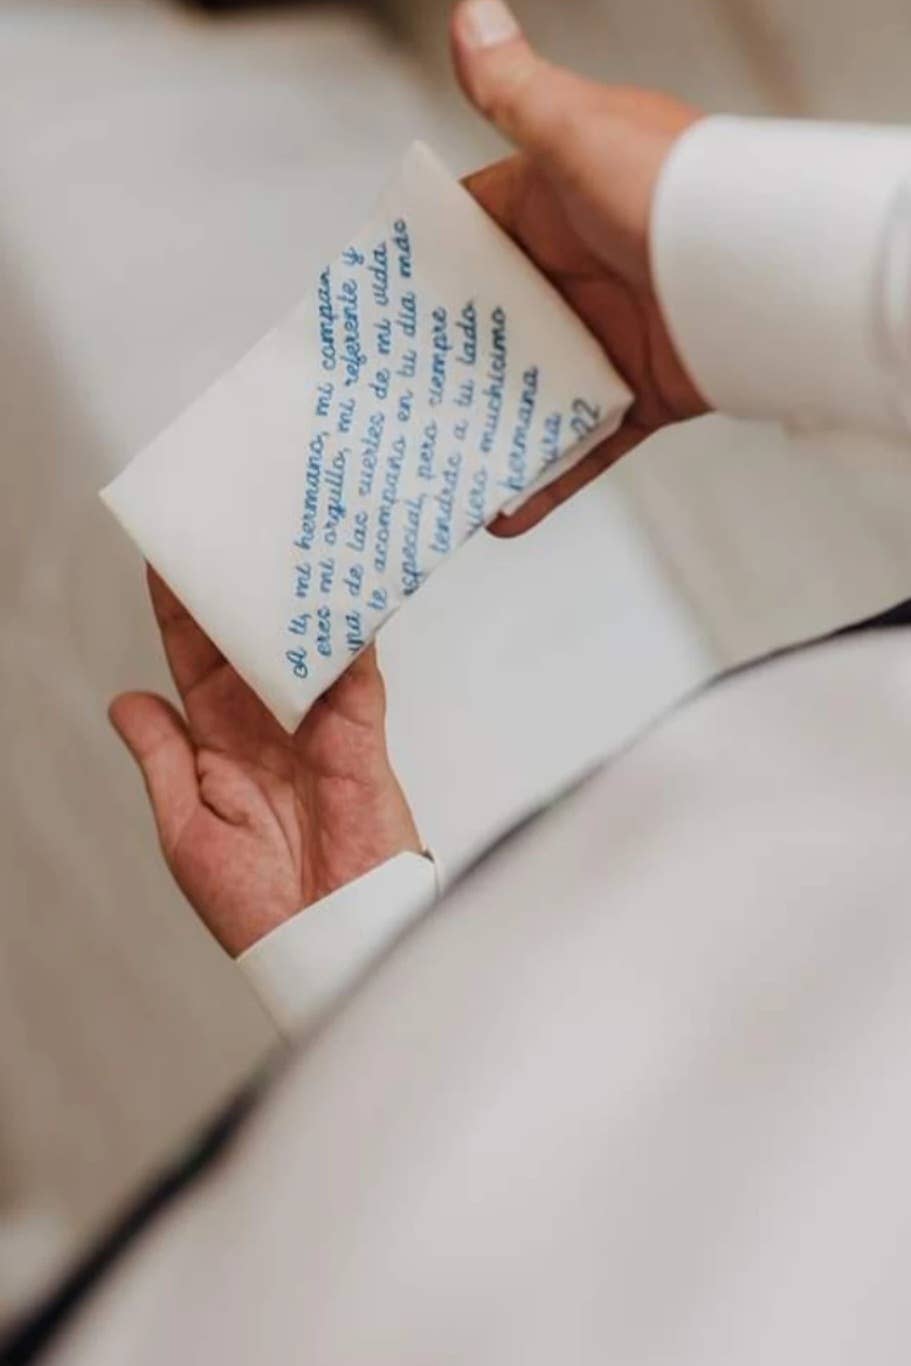 A ti, mi hermano, mi compañ
eres mi orgullo, mi referente y
una de las suertes de mi vida.
te acompaño en tu día más
especial, pero siempre
tendrás a tu lado.
muchísimo
hermana
22